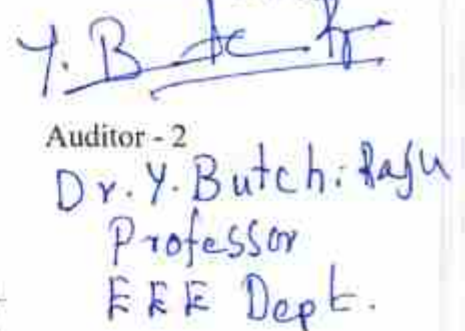 Y. B
Auditor - 2
Dr. Y. Butchi Raju
Professor
EEE Dept.